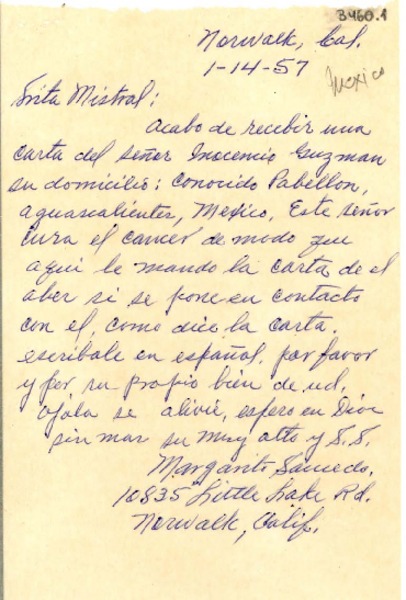 3460.1
Norwalk, Cal.
1-14-57
Mexico
Srita Mistral:
Acabo de recibir una
carta del señor Inocencio Guzman
su domicilio: Conocido Pabellon,
aguascalientes, Mexico. Este señor
cura el cancer de modo que
aqui le mando la carta de el
aber si se pone en contacto
con el, como dice la carta.
escribale en español. por favor
y por su propio bien de ud.
ojala se alivie, espero en Dios
sin mas su muy atto y S.S.
Margarito Saucedo.
10835 Little Lake Rd.
Norwalk, Calif.